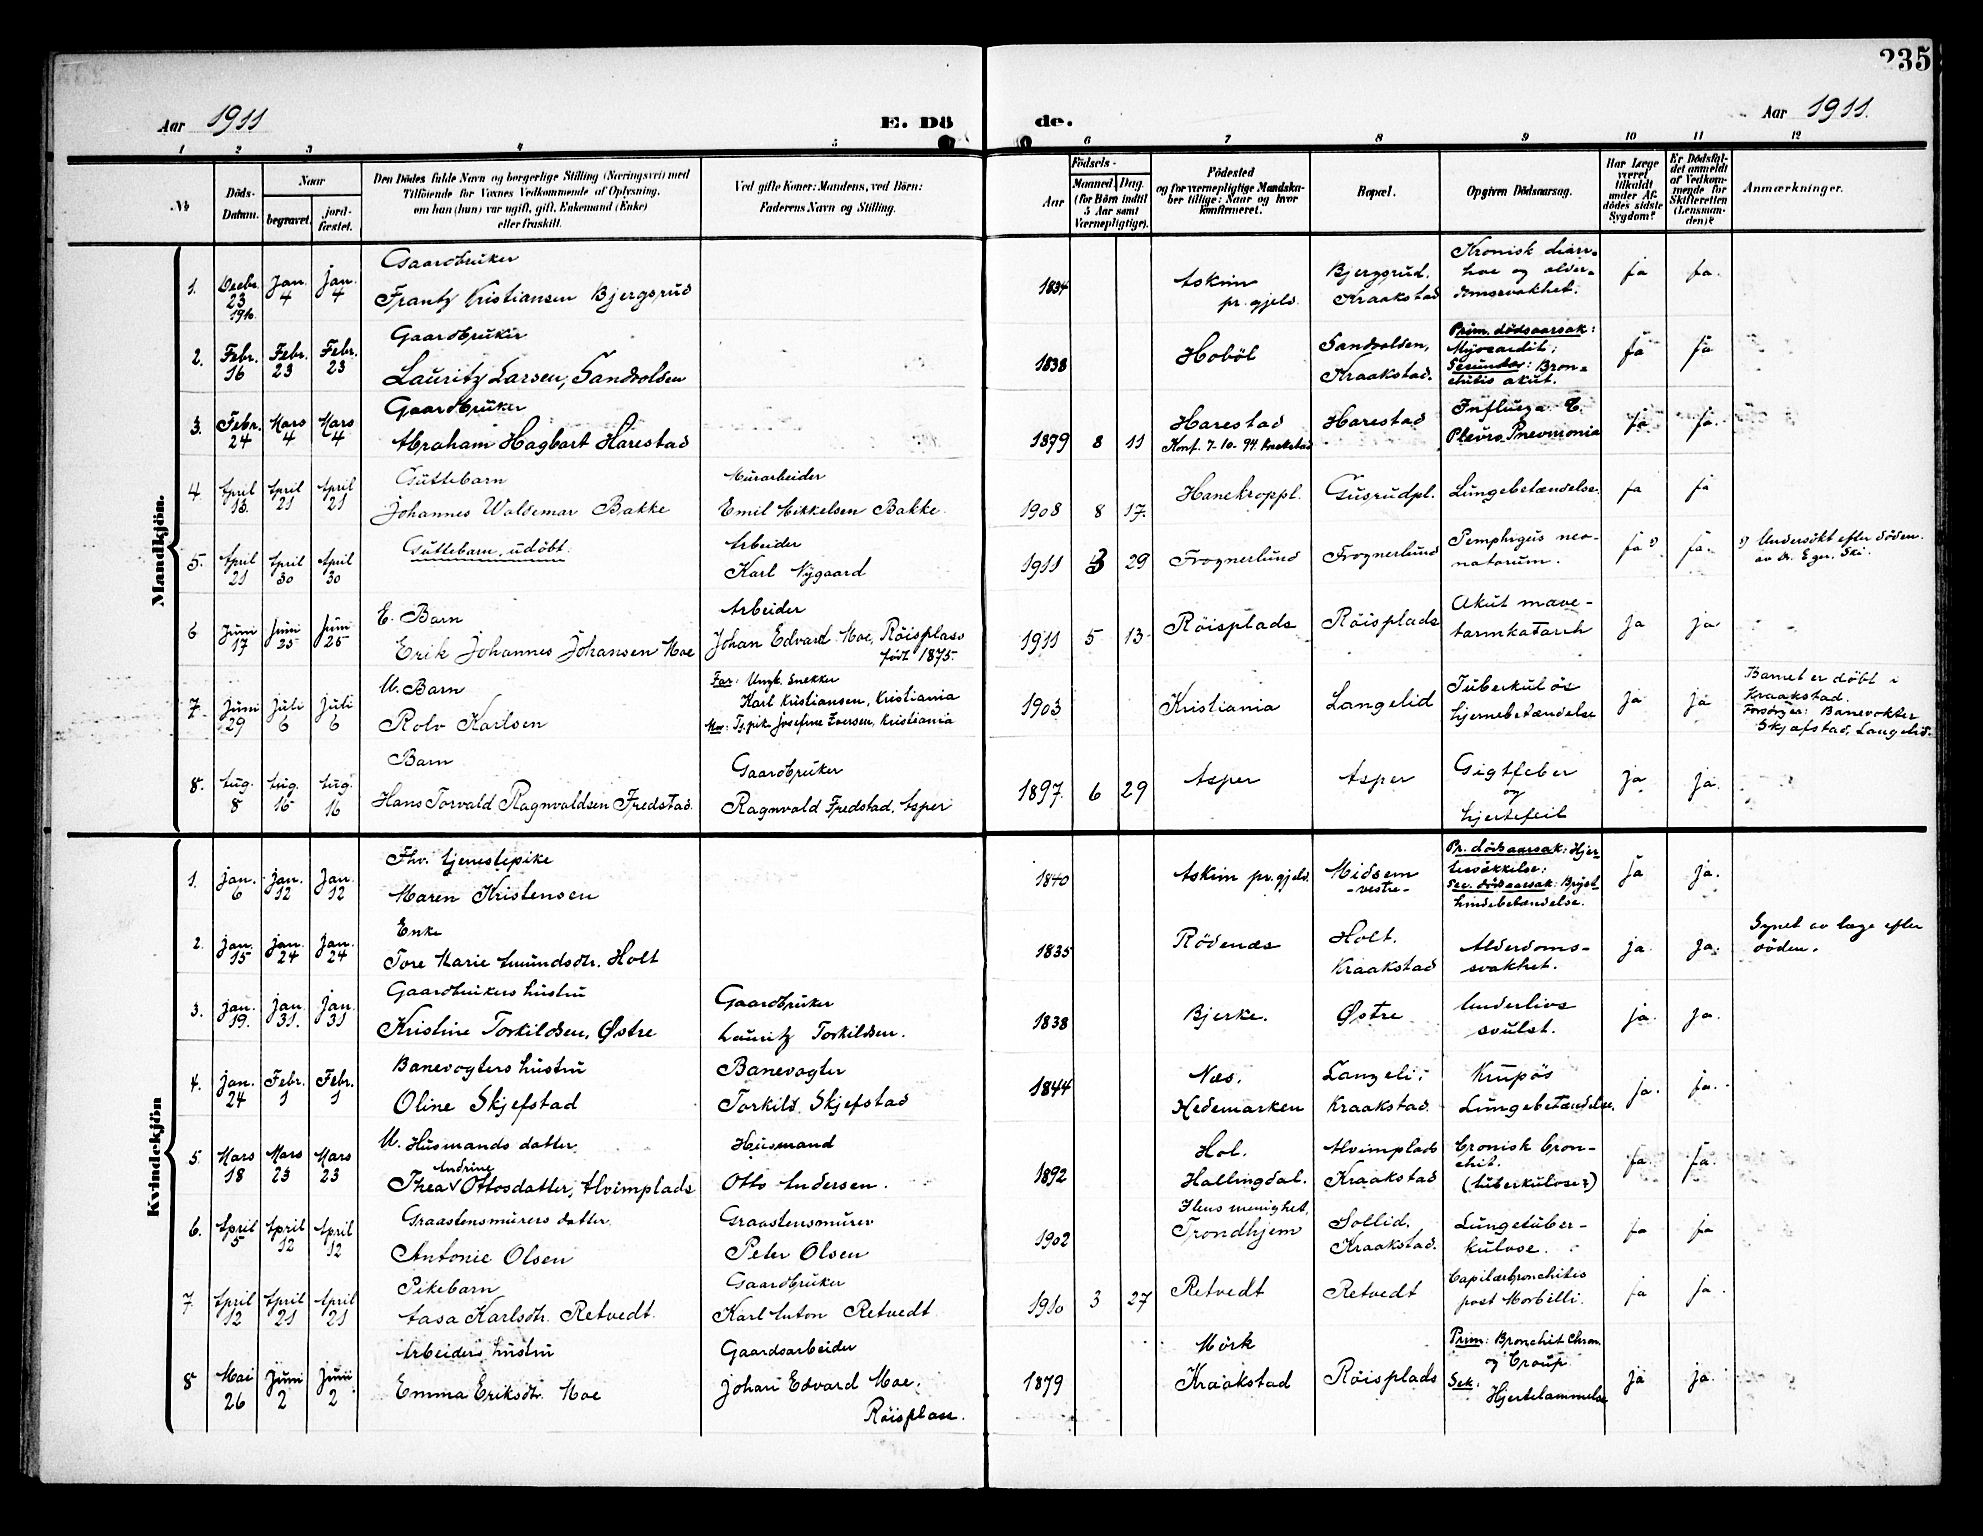 235
Aar 1911
E. Dö
de.
Aar 1911.
1 2 3 4 5 6 7 8 9 10 11 12
№
Döds-
Datum.
Naar
begravet.
jord-
fæstet.
Den Dödes fulde Navn og borgerlige Stilling (Næringsvei) med
Tilföiende for Voxnes Vedkommende af Oplysning,
om han (hun) var ugift, gift, Enkemand (Enke)
eller fraskilt.
Ved gifte Koner: Mandens, ved Börn:
Faderens Navn og Stilling.
Födsels-
Aar
Maaned. Dag.
(for Börn indtil
5 Aar samt
Værnepligtige).
Födested
og for værnepligtige Mandska-
ber tillige: Naar og hvor
konfirmeret.
Bopæl.
Opgiven Dödsaarsag.
Har Læge
været
tilkaldt
under Af-
dödes sidste
Sygdom?
Er Dödsfal-
det anmeldt
af Vedkom-
mende for
Skifteretten
(Lensman-
den)?
Anmærkninger.
Mandkjön.
1. Decbr. 23 1910. Jan. 4 Jan. 4
Gaardbruker
Frantz Kristiansen Bjergsrud
1834
Askim
pr.gjeld.
Bjergsrud.
Kraakstad
Kronisk diarr-
hoe og alder-
domssvakhet.
ja ja.
2. Febr. 16 Febr. 23 Febr. 23
Gaardbruker
Lauritz Larsen, Sandvolden
1838
Hoböl
Sandvolden,
Kraakstad.
Prim. dödsaarsak:
Myocardit;
Secundær: Bron-
chitis akut.
ja ja
3. Febr. 24 Mars 4 Mars 4
Gaardbruker
Abraham Hagbart Harestad
1879 8 11
Harestad
Konf. 7-10-94 Kraakstad
Harestad
Influenza &.
Plevro Pnevmonia
ja. ja.
4. April 13. April 21 April 21
Guttebarn
Johannes Waldemar Bakke
Murarbeider
Emil Mikkelsen Bakke.
1908 8 17.
Hanekroppl.
Gusrudpl.
Lungebetændelse.
ja ja
5. April 21 April 30 April 30
Guttebarn, udöbt.
Arbeider
Karl Nygaard
1911 3 29
Frognerlund
Frognerlund
Pemphigus neo-
natorum.
ja ¹) ja.
¹) Undersökt efter döden.
av Dr. Eger. Ski.
6 Juni 17 Juni 25 Juni 25
E. Barn
Erik Johannes Johansen Moe
Arbeider
Johan Edvard Moe, Röisplass
född 1875.
1911 5 13
Röisplads
Röisplads
Akut mave-
tarmkatarrh
ja ja
7. Juni 29 Juli 6 Juli 6
U. Barn
Rolv Karlsen
Far: Ungk. Snekker
Karl Kristiansen, Kristiania
Mor: Tj.pike Josefine Iversen, Kristiania
1903
Kristiania
Langelid
Tuberkulös
hjernebetændelse
ja ja
Barnet er döbt i
Kraakstad.
Forsörger: Banevokter
Skjefstad, Langelid.
8. Aug. 8 Aug. 16 Aug. 16
Barn
Hans Torvald Ragnvaldsen Fredstad.
Gaardbruker
Ragnvald Fredstad, Asper
1897. 6 29
Asper
Asper
Gigtfeber
og
hjertefeil
ja ja.
Kvindekjön
1. Jan. 6 Jan. 12 Jan. 12
Fhv. tjenestepike
Maren Kristensen
1840
Askim pr.gjeld.
Midsem
-vestre-
Pr. dödsaarsak: Hjer-
Sec. dödsaarsak: Bryst-
hindebetændelse.
ja ja.
2. Jan. 15 Jan. 24 Jan. 24
Enke
Tore Marie Amundsdtr. Holt
1835
Rödenæs
Holt.
Kraakstad
Alderdoms-
svakhet.
ja. ja.
Synet av læge efter
döden.
3. Jan. 19. Jan. 31. Jan. 31
Gaardbrukers hustru
Kristine Torkildsen, Østre
Gaardbruker
Lauritz Torkildsen.
1838
Bjerke.
Østre
Underlivs
svulst.
ja. ja.
4. Jan. 24 Febr. 1 Febr. 1
Banevogters hustru
Oline Skjefstad
Banevogter
Torkild Skjefstad
1844
Næs.
Hedemarken
Langeli.
Kraakstad.
Krupös
Lungebetændelse.
ja. ja.
5. Mars 18 Mars 23 Mars 23
U. Husmands datter.
Andrine
Thea Ottosdatter, Alvimplads
Husmand
Otto Andersen.
1892
Hol.
Hallingdal.
Alvimplads
Kraakstad
Cronisk bron-
chit.
(tuberkulose?)
ja. ja.
6. April 5 April 12 April 12
Graastensmurers datter
Antonie Olsen
Graastensmurer
Peter Olsen
1902
Ilens menighet,
Trondhjem
Sollid.
Kraakstad.
Lungetuber-
kulose.
ja ja
7. April 12 April 21 April 21
Pikebarn
Aasa Karlsdtr. Retvedt.
Gaardbruker
Karl Anton Retvedt
1910 3 27
Retvedt
Retvedt
Capilærbronchitis
post Morbilli.
ja ja.
8 Mai 26 Juni 2 Juni 2
Arbeiders hustru
Emma Eriksdtr. Moe
Gaardsarbeider
Johan Edvard Moe.
Röisplass.
1879
Mörk
Kraakstad
Röisplads
Prim: Bronchit Chron.
og Croup.
Sek: Hjertelammelse
ja ja.